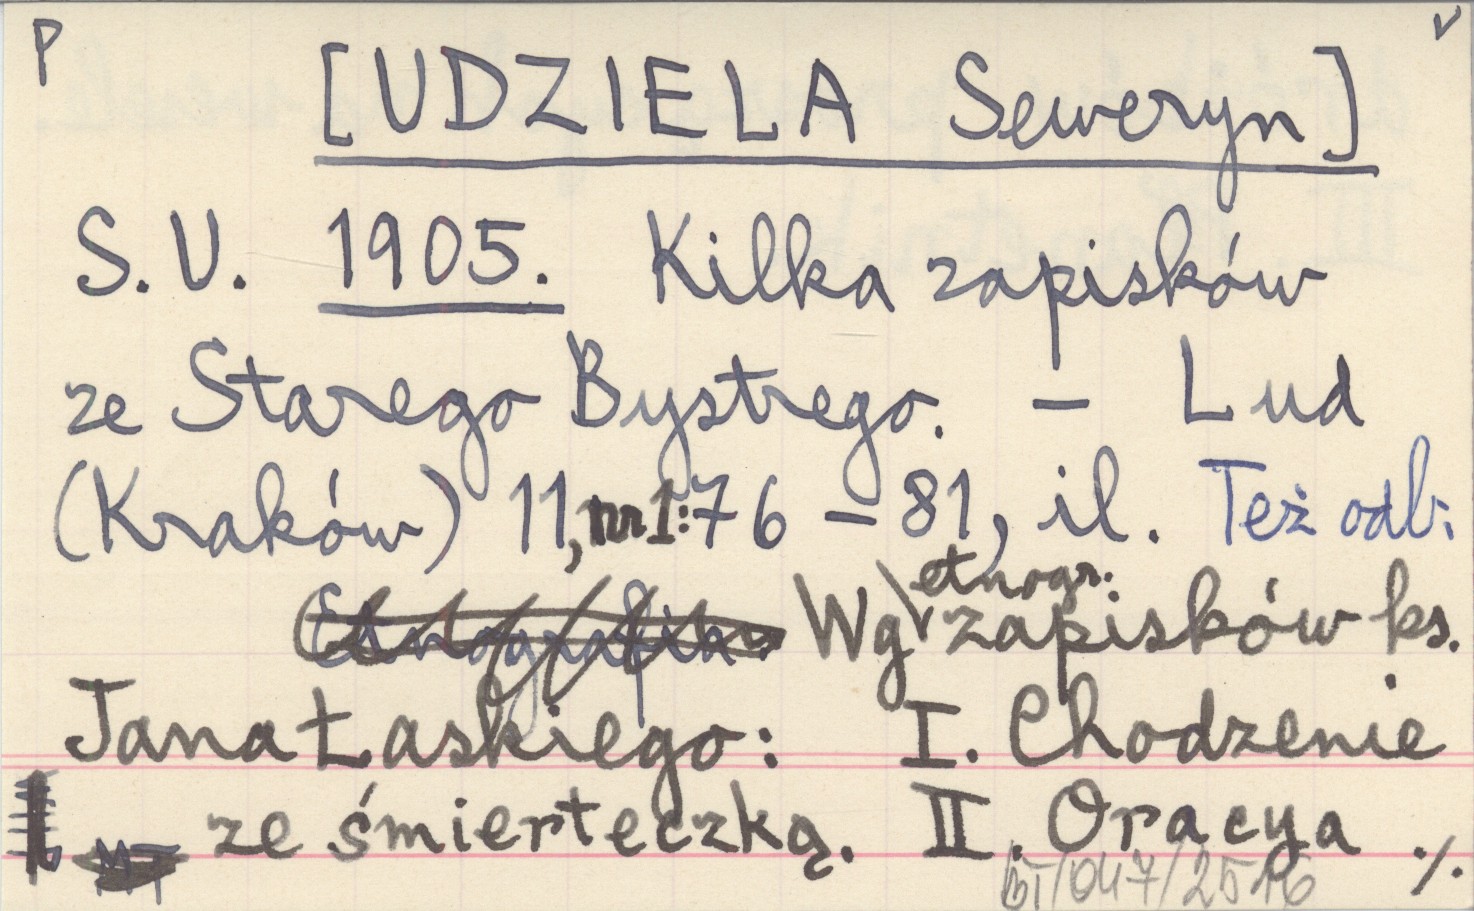 P
[UDZIELA Seweryn]
S.U. 1905. Kilka zapisków
ze Starego Bystrego. – Lud
(Kraków) 11, nr 1: 76 – 81, il. Też odb.
Wg etnogr. zapisków ks.
Jana Łaskiego: I. Chodzenie
ze śmierteczką. II. Oracya ./.
BT/047/2516